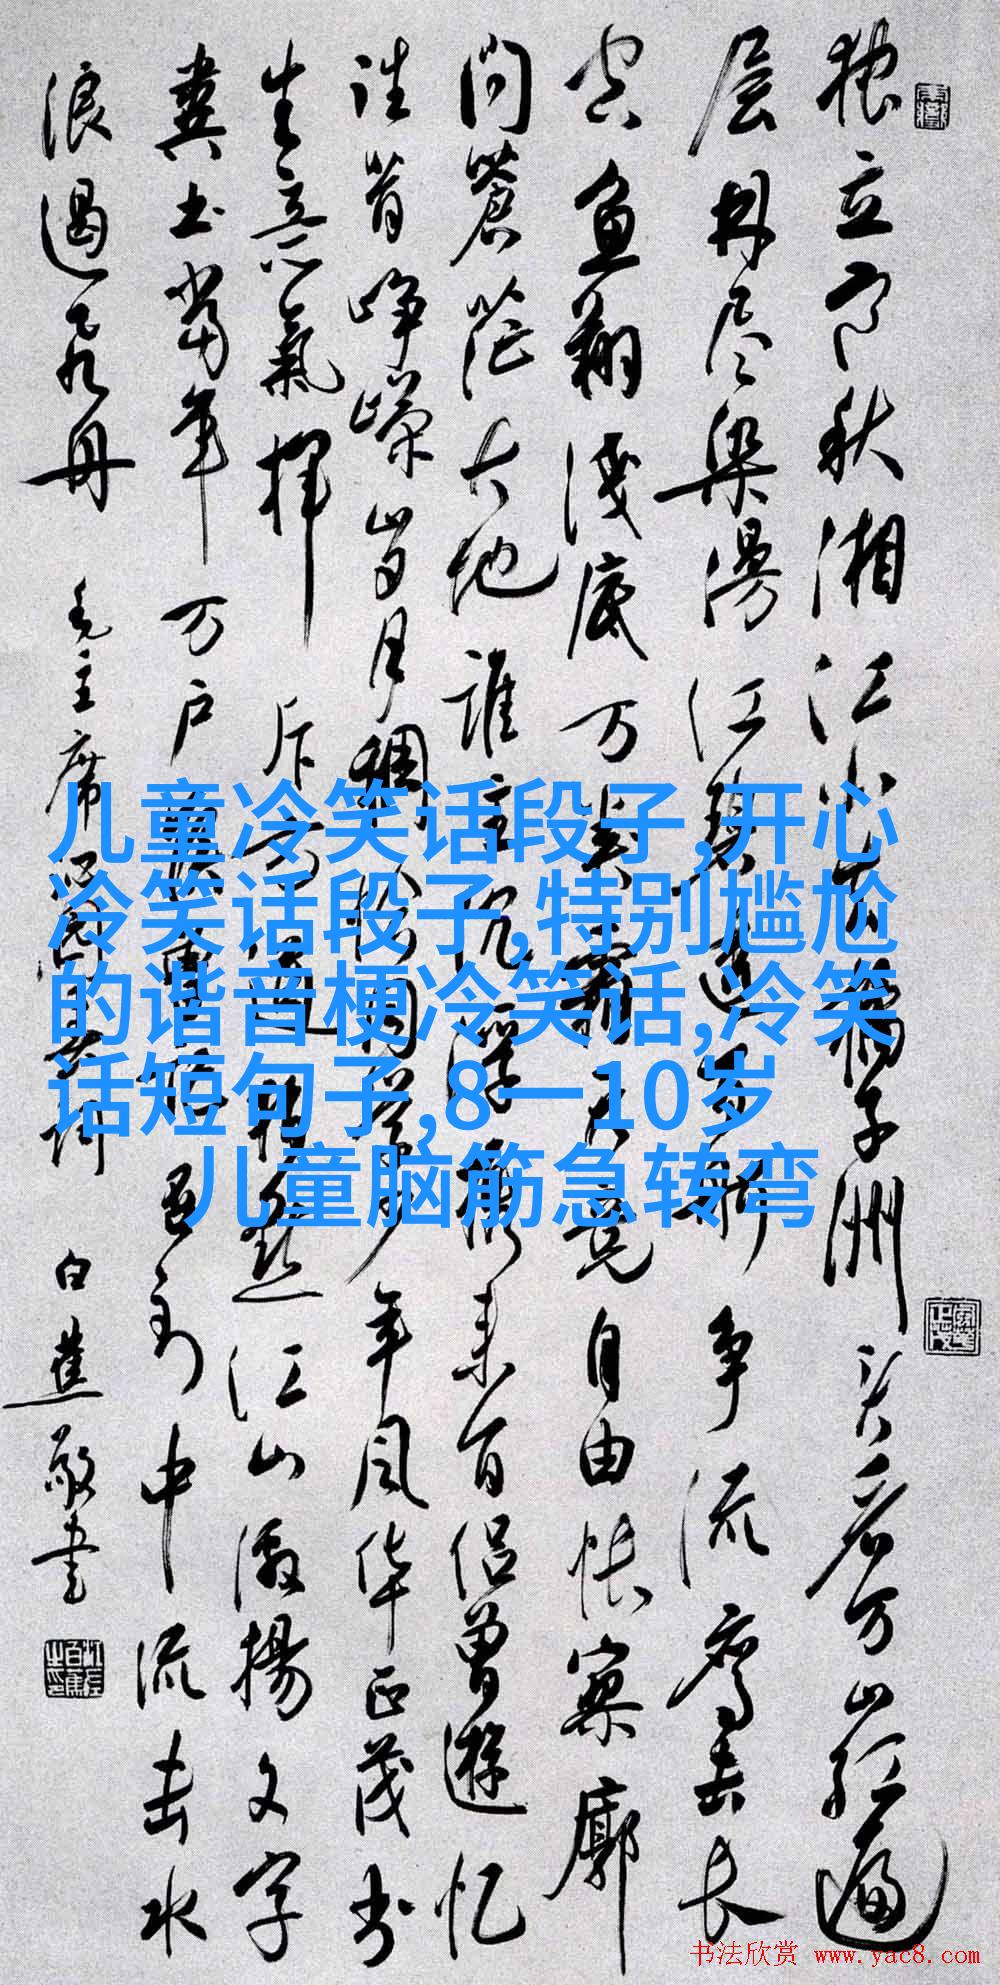 独立寒秋湘江北去橘子洲头看万山红遍
层林尽染漫江碧透百舸争流鹰击长
空鱼翔浅底万类霜天竞自由怅寥廓
问蒼茫大地谁主沉浮携来百侣曾遊忆
往昔峥嵘岁月稠恰同学少年风华正茂书
生意氣挥斥方遒指点江山激揚文字
粪土当年万户侯曾记否到中流击水
浪遏飞舟 毛主席沁园春长沙 白蕉敬書
儿童冷笑话段子,开心
冷笑话段子,特别尴尬
的谐音梗冷笑话,冷笑
话短句子,8一10岁
儿童脑筋急转弯
书法欣赏 www.yac8.com